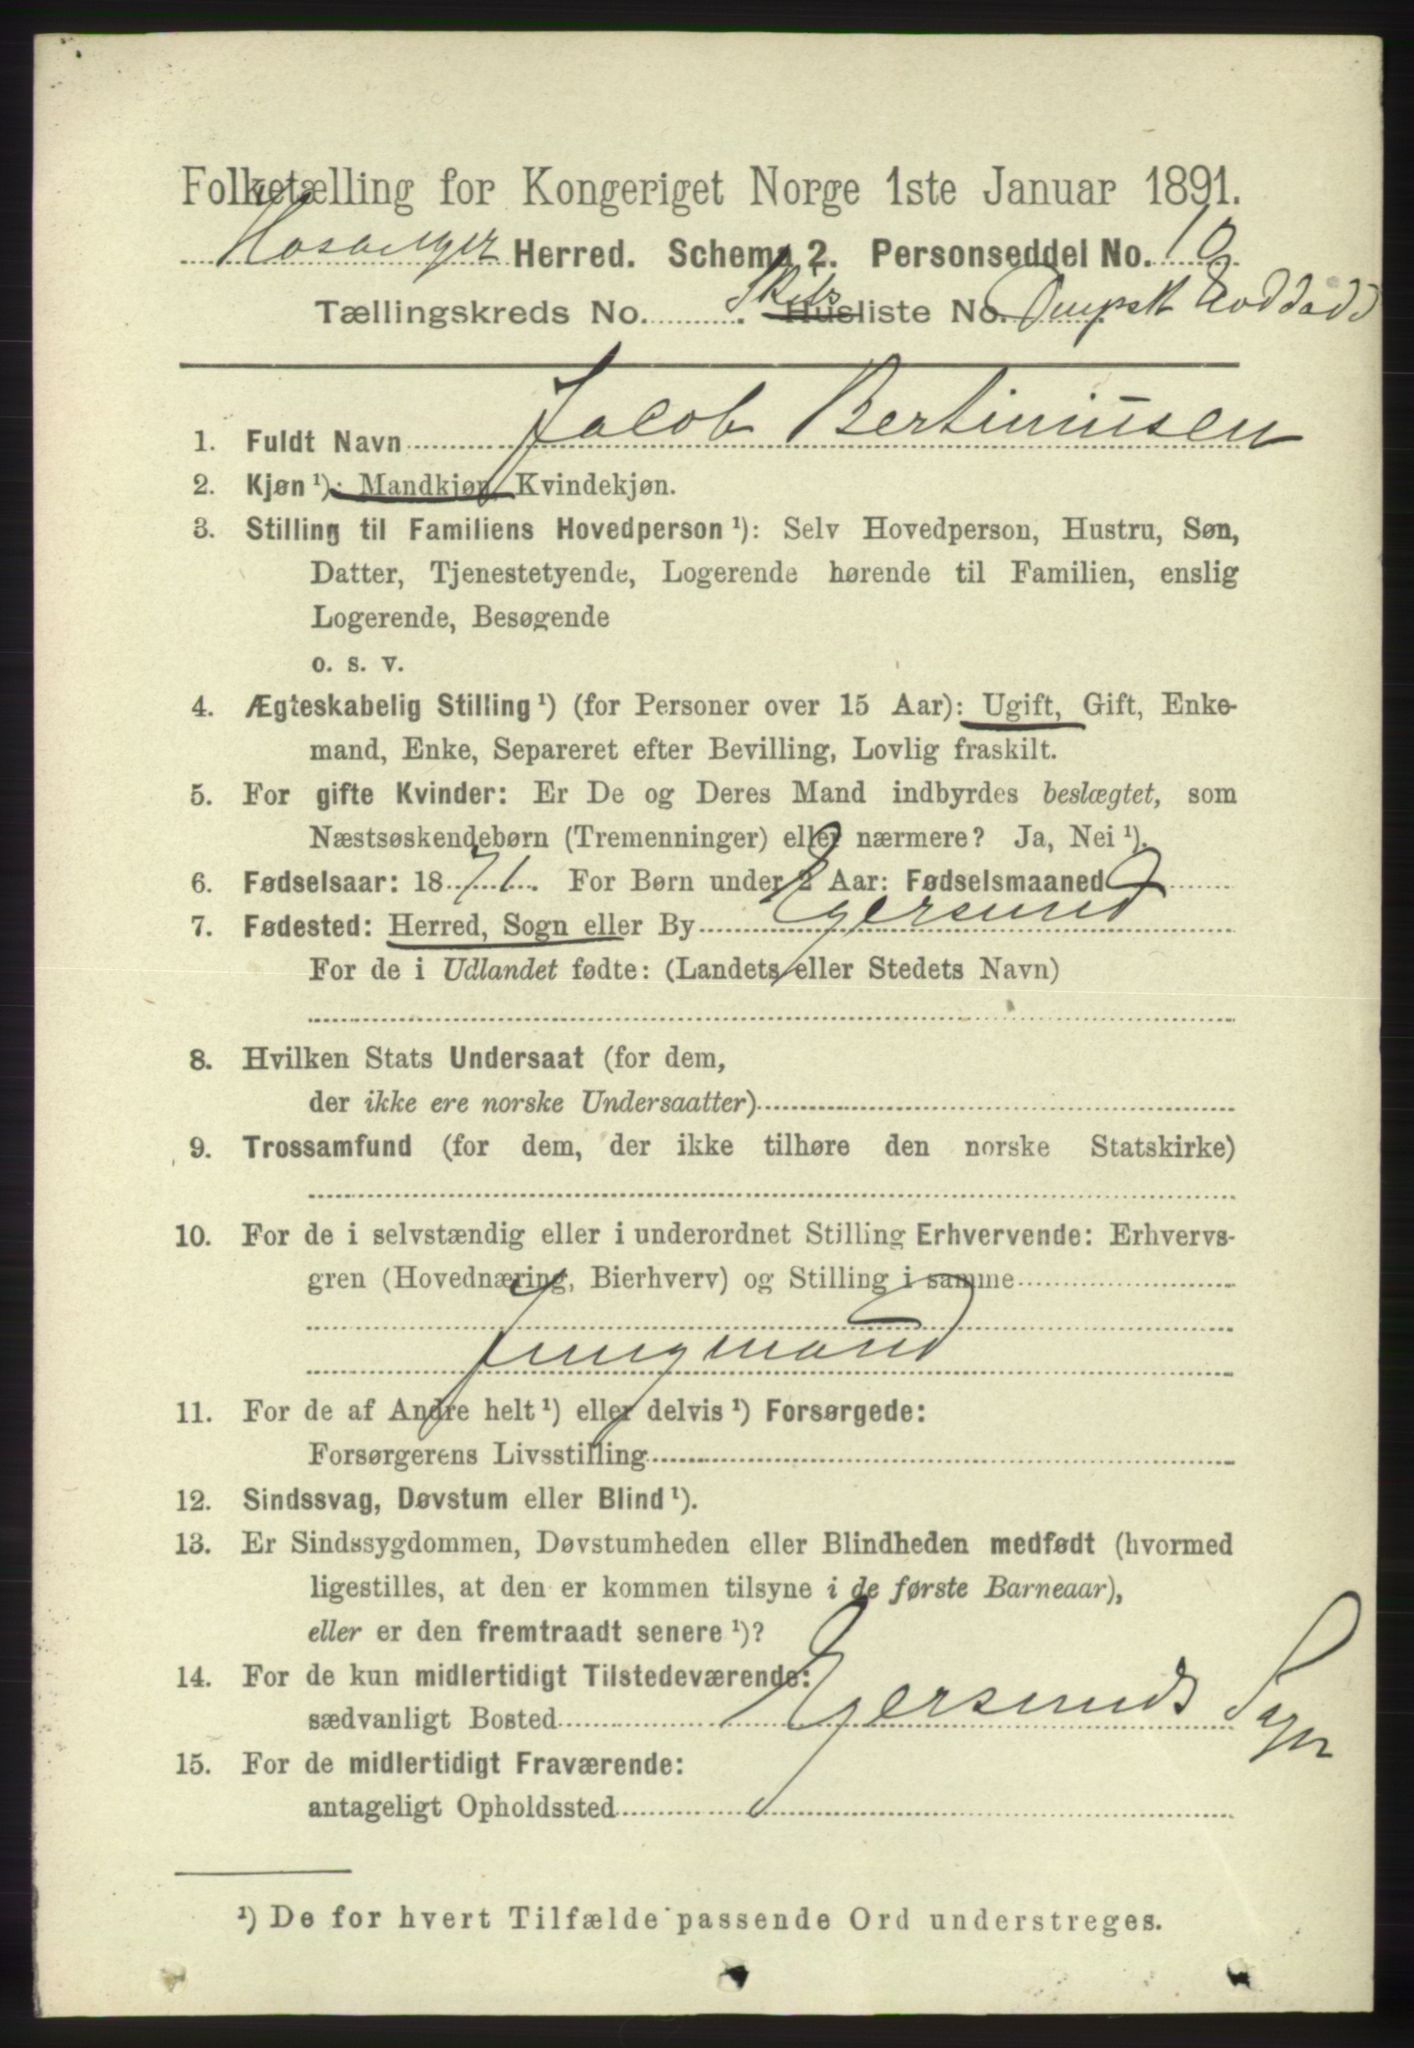 Folketælling for Kongeriget Norge 1ste Januar 1891.
Herred. Schema 2. Personseddel No. 10
Tællingskreds No. Skibsliste No. Dmpsk
1. Fuldt Navn Jacob Bertiniusen
2. Kjøn ¹): Mandkjøn, Kvindekjøn.
3. Stilling til Familiens Hovedperson ¹): Selv Hovedperson, Hustru, Søn,
Datter, Tjenestetyende, Logerende hørende til Familien, enslig
Logerende, Besøgende
o. s. v.
4. Ægteskabelig Stilling ¹) (for Personer over 15 Aar): Ugift, Gift, Enke-
mand, Enke, Separeret efter Bevilling, Lovlig fraskilt.
5. For gifte Kvinder: Er De og Deres Mand indbyrdes beslægtet, som
Næstsøskendebørn (Tremenninger) eller nærmere? Ja, Nei ¹).
6. Fødselsaar: 1871. For Børn under 2 Aar: Fødselsmaaned
7. Fødested: Herred, Sogn eller By Egersund
For de i Udlandet fødte: (Landets eller Stedets Navn)
8. Hvilken Stats Undersaat (for dem,
der ikke ere norske Undersaatter)
9. Trossamfund (for dem, der ikke tilhøre den norske Statskirke)
10. For de i selvstændig eller i underordnet Stilling Erhvervende: Erhvervs-
gren (Hovednæring, Bierhverv) og Stilling i samme
Jungmand
11. For de af Andre helt ¹) eller delvis ¹) Forsørgede:
Forsørgerens Livsstilling
12. Sindssvag, Døvstum eller Blind ¹).
13. Er Sindssygdommen, Døvstumheden eller Blindheden medfødt (hvormed
ligestilles, at den er kommen tilsyne i de første Barneaar),
eller er den fremtraadt senere ¹)?
14. For de kun midlertidigt Tilstedeværende:
sædvanligt Bosted Egersunds
15. For de midlertidigt Fraværende:
antageligt Opholdssted
¹) De for hvert Tilfælde passende Ord understreges.